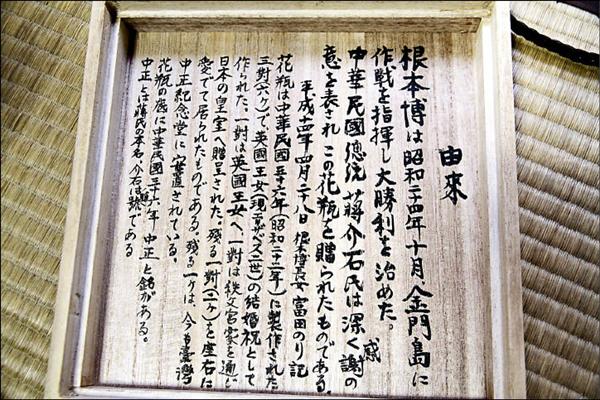 由來
根本博は昭和二十四年十月、金門島に
作戦を指揮し大勝利を治めた。
中華民國總統 蔣介石氏は深く感謝の
意を表され この花瓶を贈られたものである。
平成十四年四月二十八日 根本博長女 富田のり記
花瓶は中華民國三十六年(昭和二十二年)に製作された
三對(六ヶ)で、英國王女(現エリザベス二世)の結婚祝として
作られた。一對は英國王女へ、一對は秩父宮家を通じ
日本の皇室へ贈呈された。残る一對(二ヶ)を座右に
愛でて居られたものである。残る一ヶは、今も臺灣
中正紀念堂に安置されている。
花瓶の底に中華民國三十六年 中正と銘がある。
中正とは蔣氏の本名、介石は號である